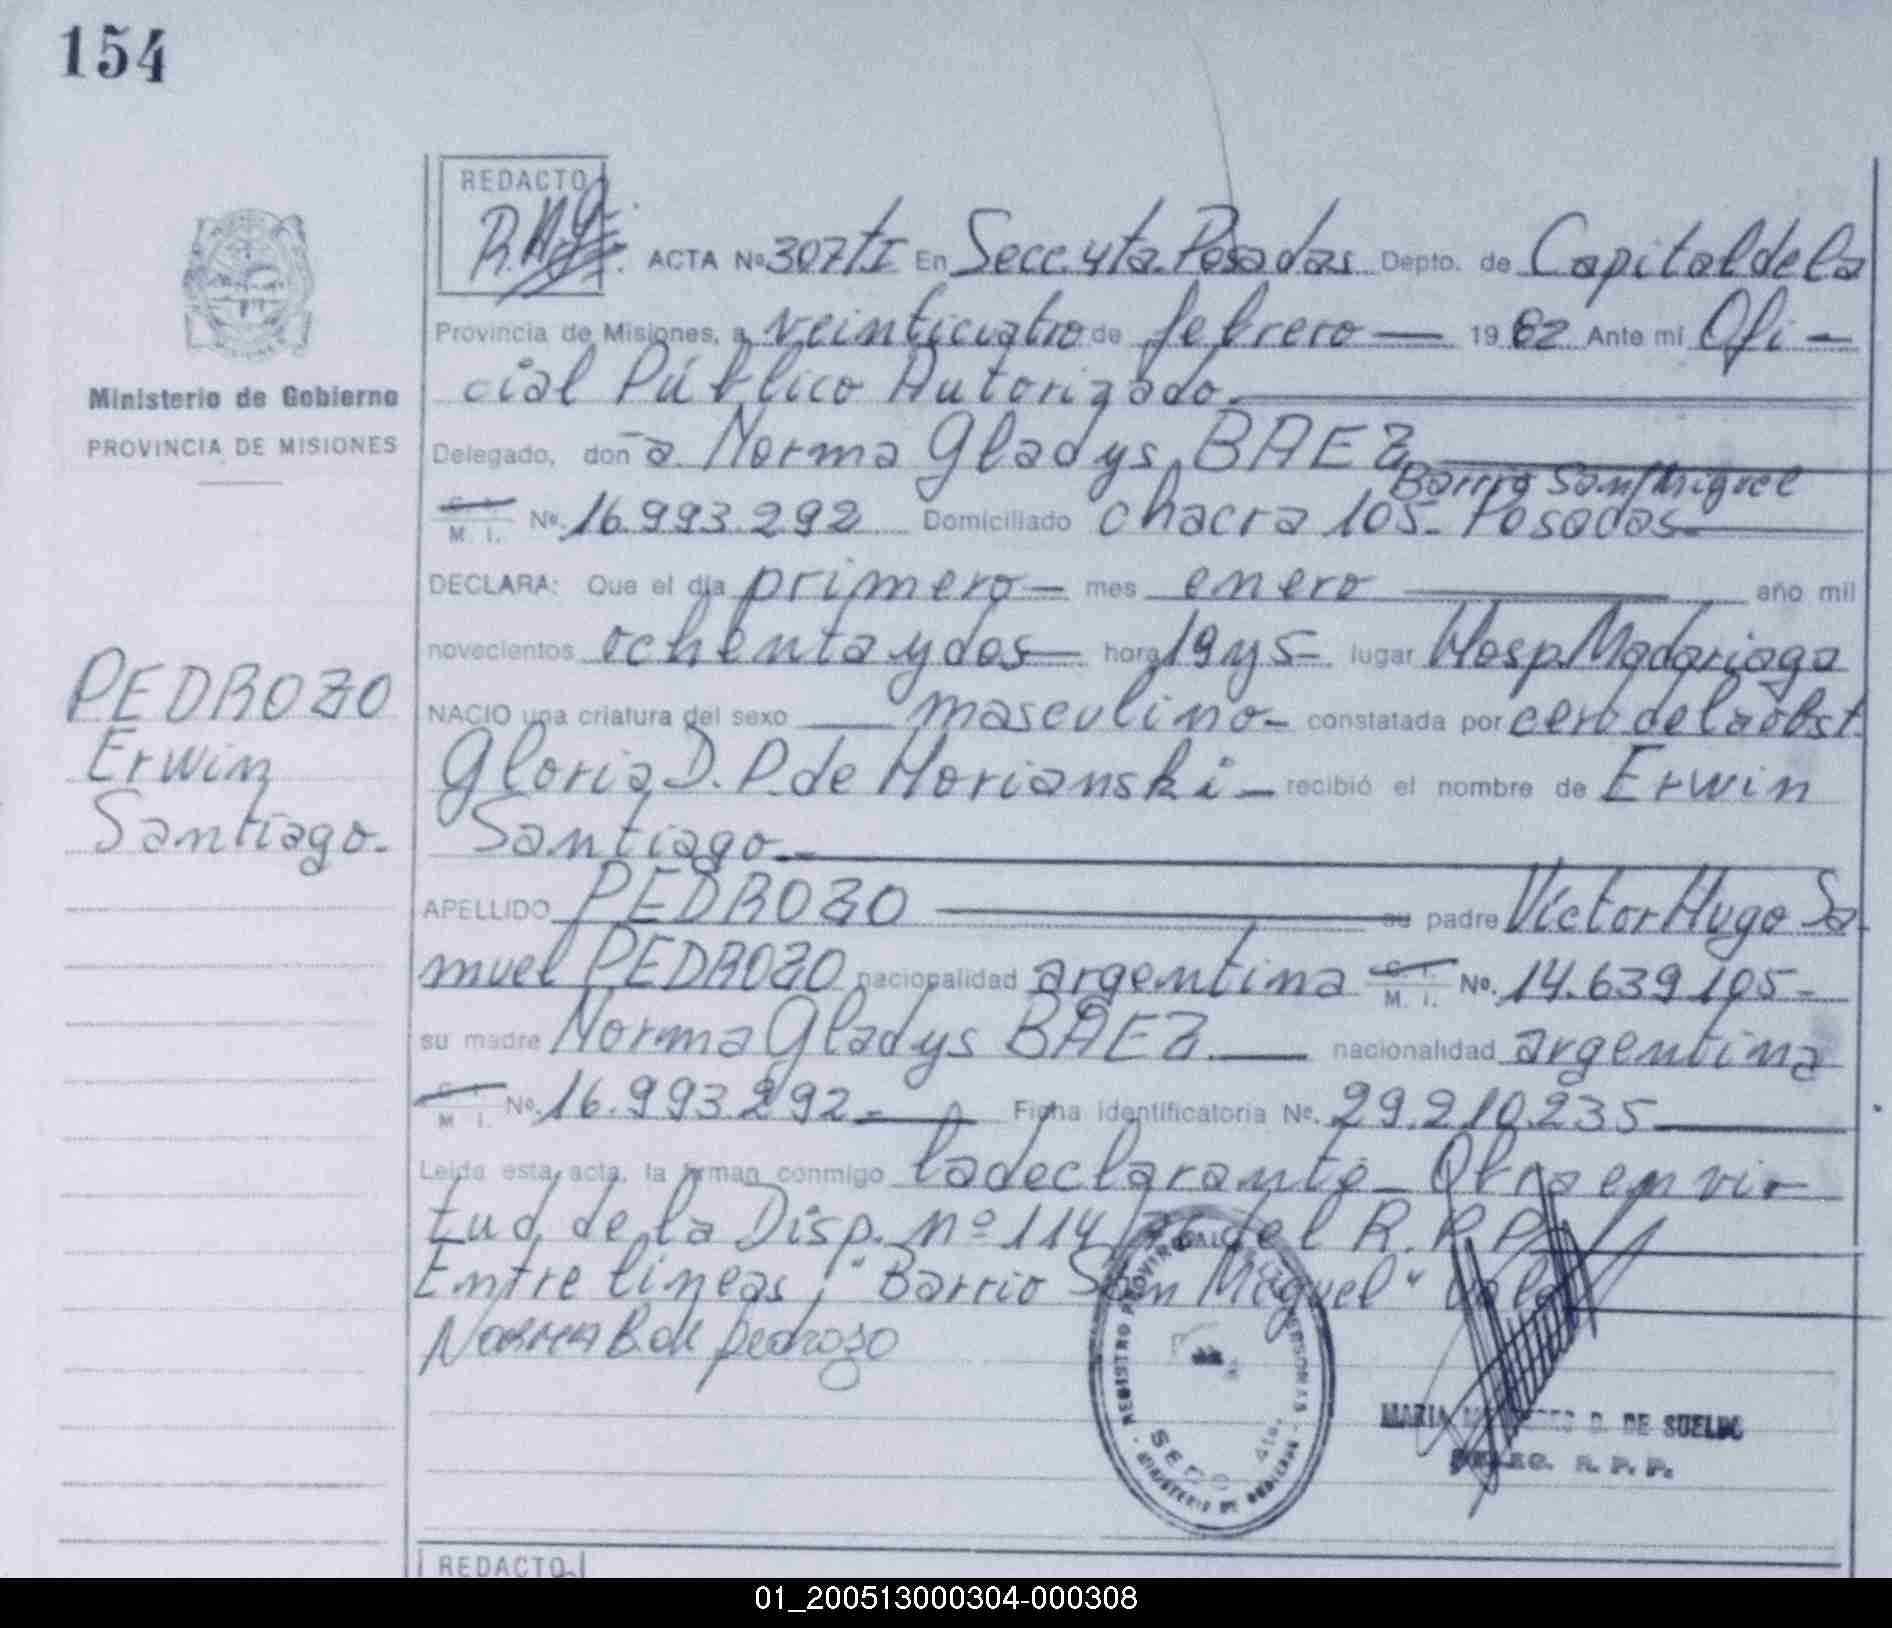 154
REDACTO
ACTA Nº 307 tI En Secc. 4ta. Posadas Depto. de Capital de la
Provincia de Misiones, a veinticuatro de febrero — 1982 Ante mí Ofi-
cial Público Autorizado.
Ministerio de Gobierno
PROVINCIA DE MISIONES
Delegado, doña Norma Gladys BAEZ
Barrio San Miguel
M. I. Nº. 16.993.292 Domiciliado chacra 105- Posadas
DECLARA: Que el día primero — mes enero — año mil
novecientos ochenta y dos — hora 19 y 5 - lugar Hosp. Madariaga
NACIO una criatura del sexo — masculino - constatada por cert. de la obst.
Gloria D. P. de Morianski - recibió el nombre de Erwin
Santiago
PEDROZO
Erwin
Santiago.
APELLIDO PEDROZO — su padre Víctor Hugo Sa-
muel PEDROZO nacionalidad argentina M. I. Nº. 14.639.105-
su madre Norma Gladys BAEZ. — nacionalidad argentina
M. I. Nº. 16.993.292- Ficha identificatoria Nº. 29.210.235
Leída esta acta, la firman conmigo la declarante - Obra en vir-
tud de la Disp. nº 114 del R.P.P.
Entre líneas; "Barrio San Miguel" Vale
Norma B de pedrozo
REGISTRO PROVINCIAL PERSONAS - MINISTERIO DE GOBIERNO
4ta.
MARIA D. DE SUELDO
R. P. P.
REDACTO
01_200513000304-000308